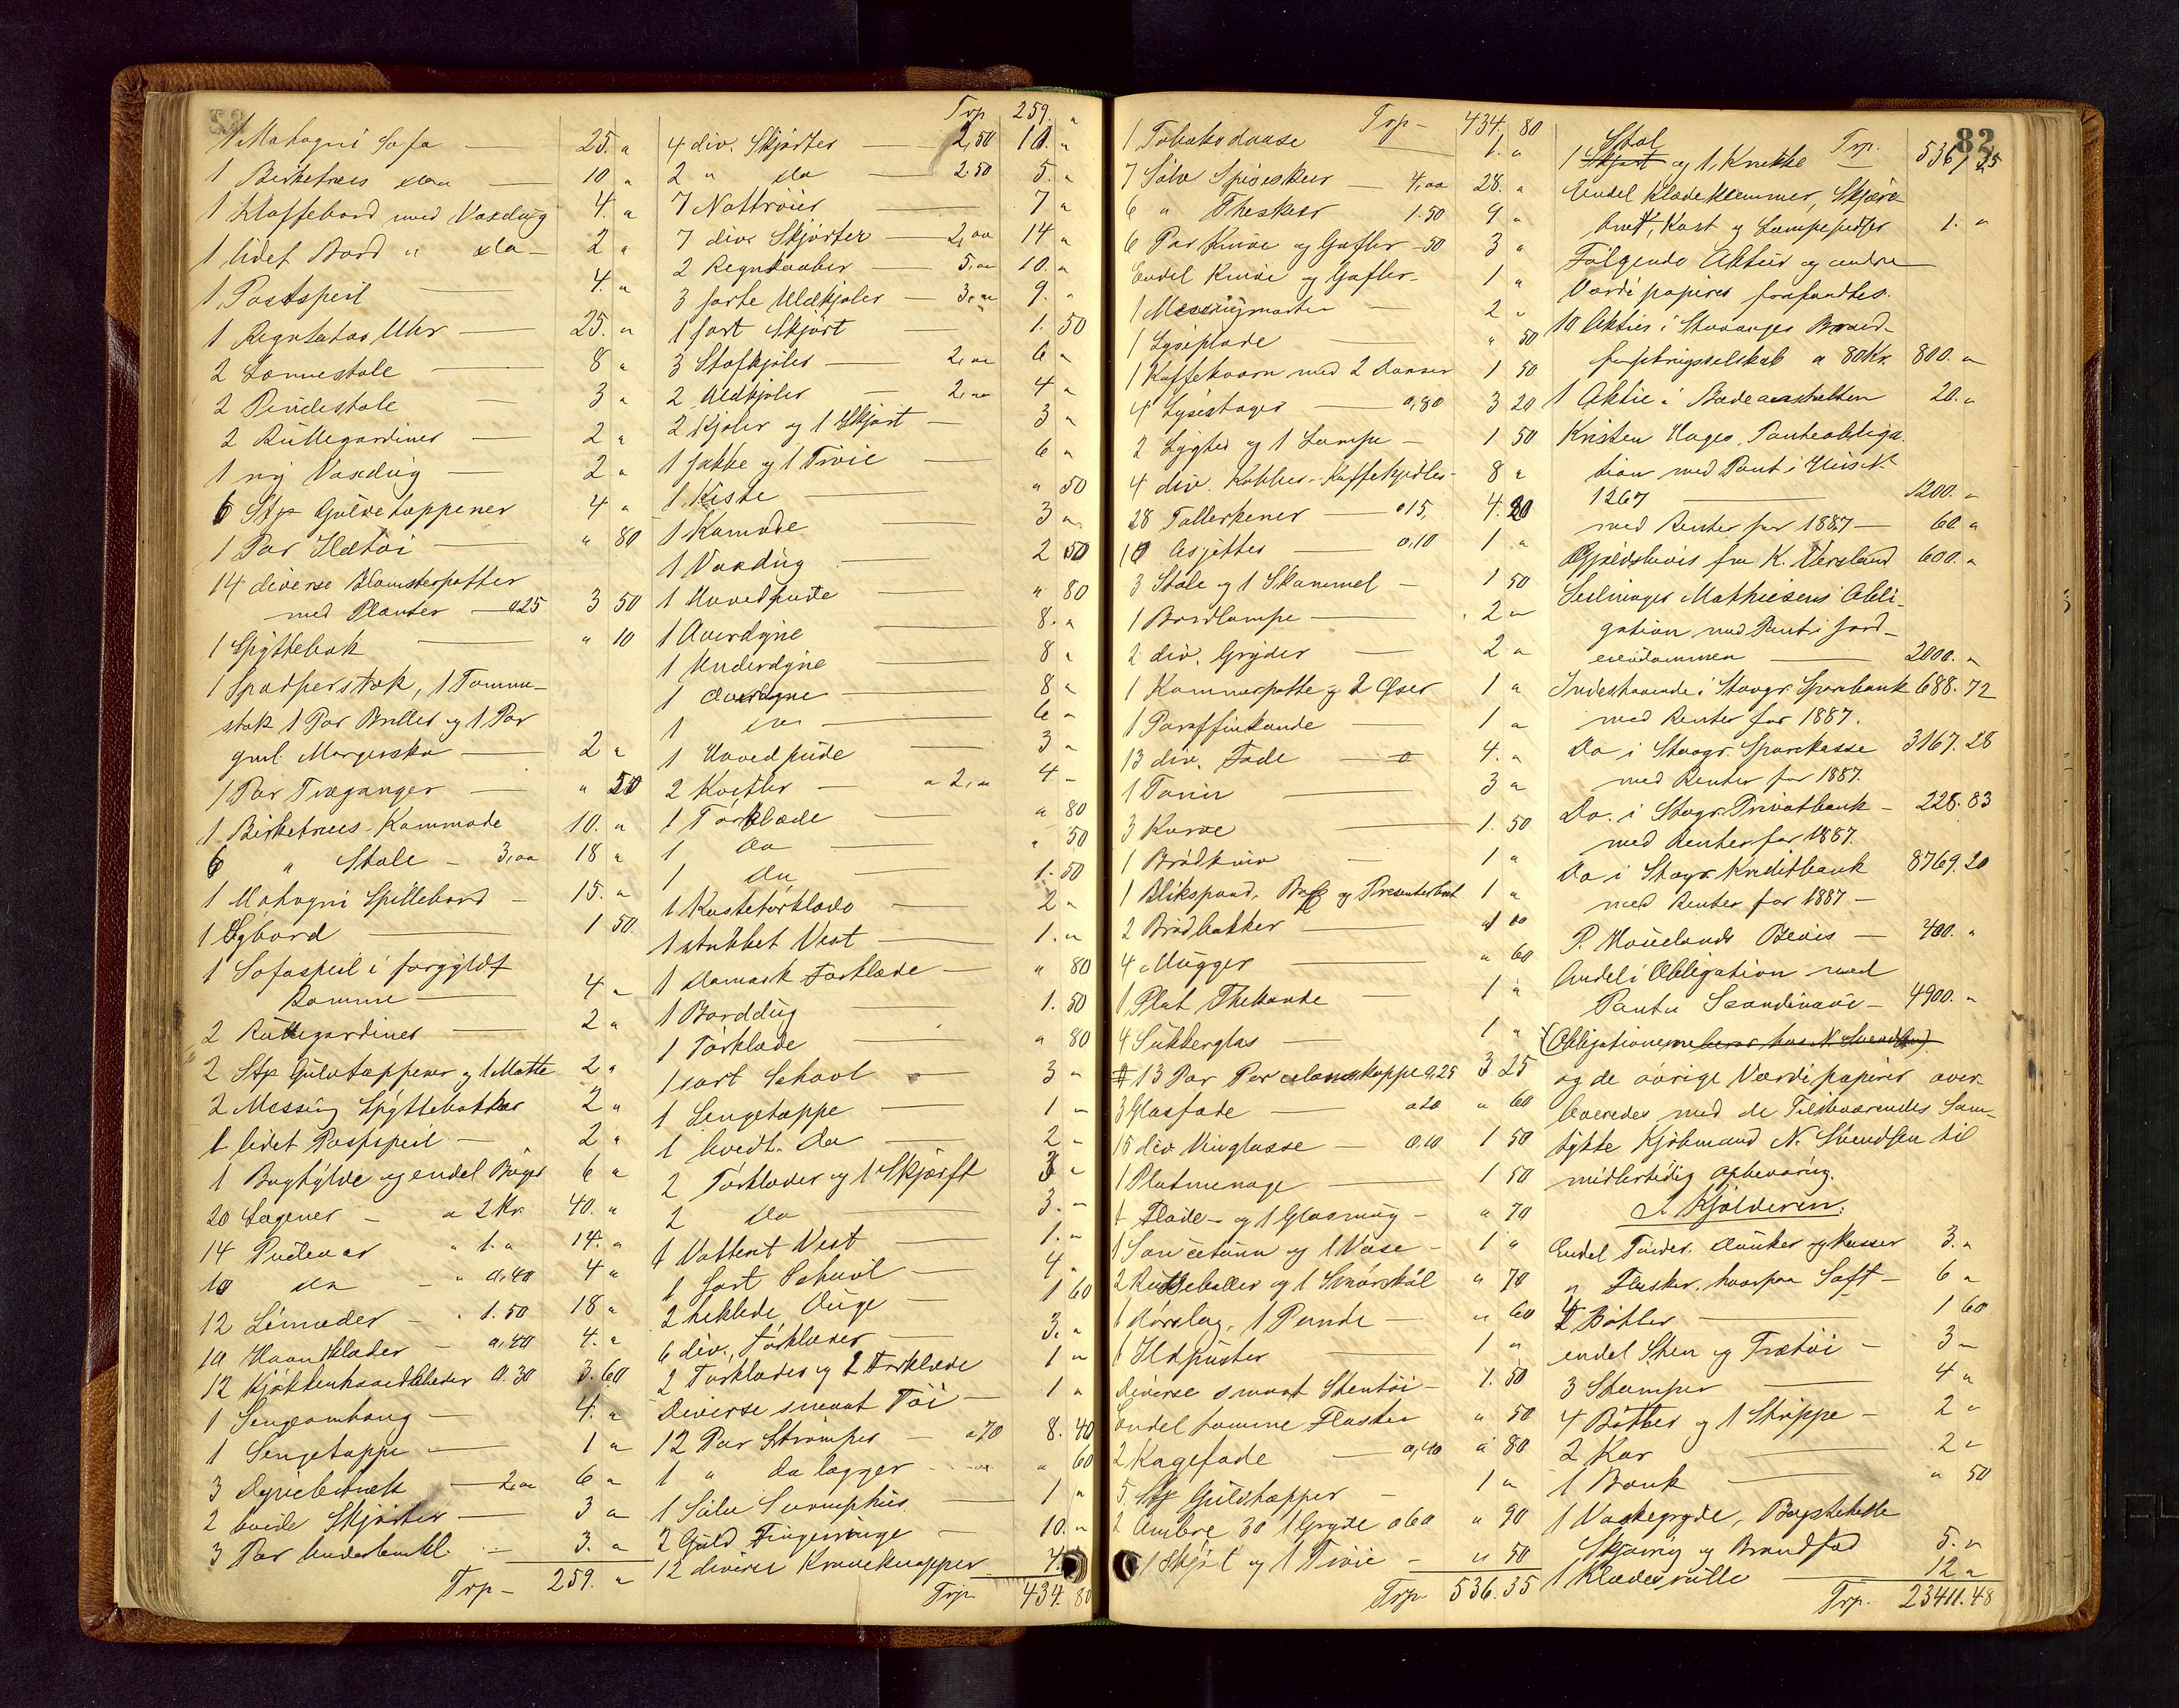 1 Mahogni Sofa — 25. "
1 Birketræes do — 10 "
1 Klaffebord med Voxdug 4. "
1 lidet Bord " do — 2 "
1 Postspeil — 4. "
1 Regulator Uhr — 25. "
2 Lænnestole — 8 "
2 Pindestole — 3 "
2 Rullegardiner — 2 "
1 ny Voxdug — 2 "
6 Stp Gulvetæppener 4 "
1 Par Ildtøi — " 80
14 diverse Blomsterpotter
med Planter — 0.25 3 50
1 Spyttebak — " 10
1 Spadserstok, 1 Tomme-
stok 1 Par Briller og 1 Par
gml. Morgensko — 2 "
1 Par Træganger — " 50
1 Birketræes-Kommode 10. "
6 " Stole — 3,00 18 "
1 Mahogni Spillebord — 15. "
1 Sybord — 1 50.
1 Sofaspeil i forgyldt
Ramme — 4 "
2 Rullegardiner — 2 "
2 Stp Gulvtæppener og 1 Matte 2 "
2 Messing Spyttebakker 2 "
1 lidet Postspeil — 2 "
1 Boghylde og endel Bøger 6 "
20 Lagener — a 2 Kr 40. "
14 Pudevar " 1. " 14. "
10 do — " 0,40 4 "
12 Linneder — " 1.50 18 "
10 Haandklæder — 0,40 4. "
12 Kjøkkenhaandklæder 0.30 3.60
1 Sengeomhang — 4. "
1 Sengetæppe — 1 "
3 Dynebetræk — 2,00 6 "
2 hvide Skjørter — 3 "
3 Par Underbenkl. — 3. "
Trp — 259. "
Trp 259. "
4 div. Skjørter — 2,50 10. "
2 " do — 2.50 5. "
7 Nattrøier — 7 "
7 div. Skjorter — 2,00 14 "
2 Regnkaaber — 5,00 10. "
3 sorte Uldkjoler — 3,00 9. "
1 sort Skjørt 1. 50
3 Stofkjoler — 2,00 6 "
2 Uldkjoler — 2,00 4 "
2 Kjoler og 1 Skjørt — 3 "
1 Jakke og 1 Trøie — 6 "
1 Kiste — " 50
1 Komode — 3 "
1 Voxdug — 2 50
1 Hovedpude — " 80
1 Overdyne — 8. "
1 Underdyne — 8 "
1 Overdyne — 8 "
1 do — 6 "
1 Hovedpude — 3 "
2 Kofter — a 2,00 4 —
1 Tørklæde — " 80
1 do — " 50
1 do — 1. 50
1 Kastetørklæde — 2 "
1 strikket Vest — 1. "
1 Damask Tørklæde — " 80
1 Borddug — 1. 50
1 Tørklæde — " 80
1 sort Schavl — 3 "
1 Sengetæppe — 1 —
1 hvidt do — 2 "
2 Tørklæder og 1 Skjærft 3 "
2 do — 3. —
1 Vatteret Vest — 1. "
1 Sort Schavl — 4 "
2 heklede Duge — 1 60
6 div. Tørklæder — 3. "
2 Tørklæder og 2 Forklæde 1 "
Diverse smaat Tøi — 1 "
12 Par Strømper — a 70 8. 40
1 " do lægger — " 60
1 Sølv — 1 "
2 Guld Fingerringe — 10. "
12 diverse Kraveknapper 4.
Trp. 434. 80
Trp — 434. 80
1 Tobaksdaase — 1. "
7 Sølv Spiseskeer — 4,00 28. "
6 " Theskeer 1.50 9 "
6 Par Knive og Gafler — 50 3 "
Endel Knive og Gafler — 1 "
1 Messingmorter — 2 "
1 Lyseplade — " 50
1 Kaffekværn med 2 Daaser 1 50
4 Lysestager — 0,80 3 20
2 Lygter og 1 Lampe — 1 50
4 div. Kobber-Kaffekjedler — 8 "
28 Tallerkener — 0.15, 4.20
10 Asjetter — 0,10 1 "
3 Stole og 1 Skammel — 1 50
1 Bordlampe — 2 —
2 div. Gryder — 2 "
1 Kammerpotte og 2 Øser 1 "
1 Paraffinkande — 1 "
13 div. Fade — 4. "
1 Terrin — 3 "
3 Kurve — 1. 50
1 Brødkniv — 1 "
1 Blikspand, Bøtte og Præsenterbret 1 "
2 Brødbakker — 00
4 Mugger — " 60
1 Plet Thekande — 1 "
4 Sukkerglas — 1 "
13 Par Porcelænskopper 0,25 3 25
3 Glasfade — 0.20 " 60
15 div. Vinglasse — 0,10 1 50
1 Pletmenage — 1 50
1 Fløde- og 1 Glasmug — " 70
1 Saucetærrin og 1 Vase — 1 "
2 og 1 Smørskål " 70
1 Dørslag, 1 Pande — " 60
1 Ildpuster — 1 "
Diverse smaat Stentøi — 1. 50
Endel tomme Flasker " 50
2 Kagefade — 0,40 " 80
5 Stp Gulvtæpper — 1 "
2 Ambre 30 1 Gryde 0 60 " 90
1 Skjørt og 1 Trøie — " 50
Trp. 536.35
82
Stol Trp. 536,35
1 Skjørt og 1 Krukke —
Endel Klædeklemmer, Skjære-
bræt, Kost og Lampepudser 1. "
Følgende Aktier og andre
Værdipapirer forefandtes.
10 Aktier i Stavanger Brand-
forsikringsselskab a 80 Kr. 800. "
1 Aktie i Badeanstalten 20. "
Kristen Hages Panteobliga-
tion med Pant i Hus No
1267 — 1200. "
med Renter for 1887 — 60. "
Gjældsbevis fra K. Værsland 600. "
Seilmager Mathiesens Obli-
gation med Pant i Jord-
eiendommen — 2000. "
Indestaaende i Stavgr. Sparebank 688. 72
med Renter for 1887.
Do i Stavgr. Sparekasse 3167. 28
med Renter for 1887.
Do. i Stavgr. Privatbank — 228. 83
med Renter for 1887.
Do i Stavgr. Kreditbank 8769. 20
med Renter for 1887 —
P. Houelands Bevis — 400. "
Andel i Obligation med
Pant i Scandinavi — 4900. "
(Obligationerne beror hos N. Svendsen)
og de øvrige Værdipapirer over-
leveredes med de Tilstedeværendes Sam-
tykke Kjøbmand N. Svendsen til
midlertidig Opbevaring.
I Kjælderen:
Endel Tønder, Dunker og Kasser 3. "
" Flasker, hvorpaa Saft — 6 "
4 Bøtler — 1 60
endel Sten og Trætøi — 3 —
3 Stamper — 4 "
4 Bøtter og 1 Skjeppe — 2 "
2 Kar — 2 "
1 Bænk — " 50
1 Vaskegryde, Bøgekedle
Skjæring og Brandfad 5. "
1 Klæderulle — 12 "
Trp. 23411.48